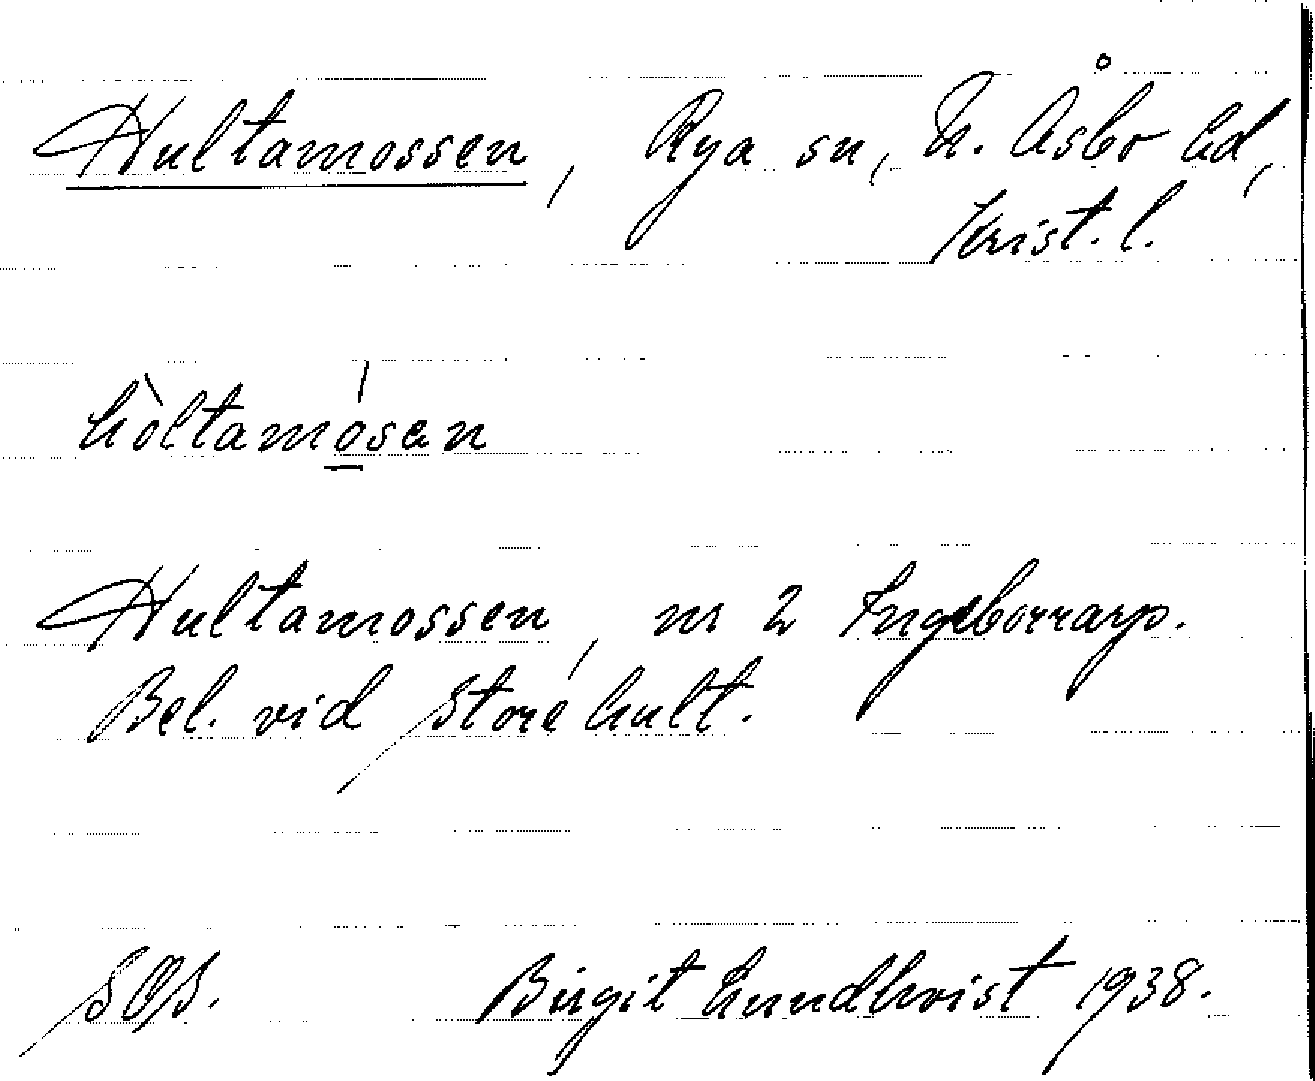 Hultamossen, Rya sn, N. Åsbo hd,
Krist. l.
hòltamósen
Hultamossen, nr 2 Ingeborrarp.
Bel. vid Store hult.
SOS. Birgit Lundkvist 1938.